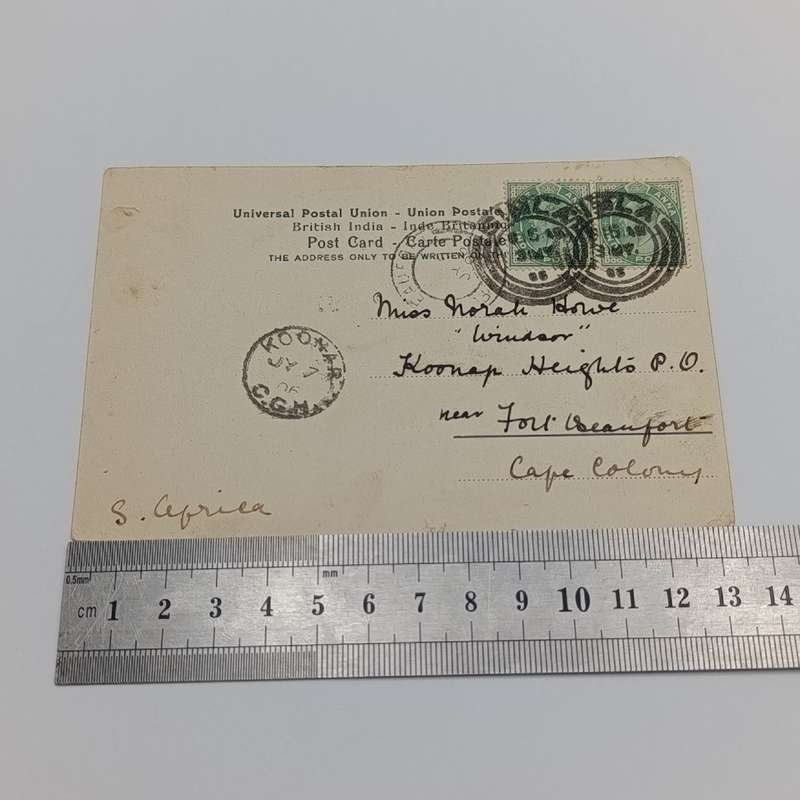 Universal Postal Union - Union Postale
British India - Inde Britannique
Post Card - Carte Postale
THE ADDRESS ONLY TO BE WRITTEN ON TH
ANNA
ANNA
SIMLA
SIMLA
Miss Norah Howe
"Windsor"
Koonap Heights P.O.
near Fort Beaufort
Cape Colony
KOONAP
JA 7
06
C.G.H.
S. Africa
0.5mm
mm
cm 1 2 3 4 5 6 7 8 9 10 11 12 13 14